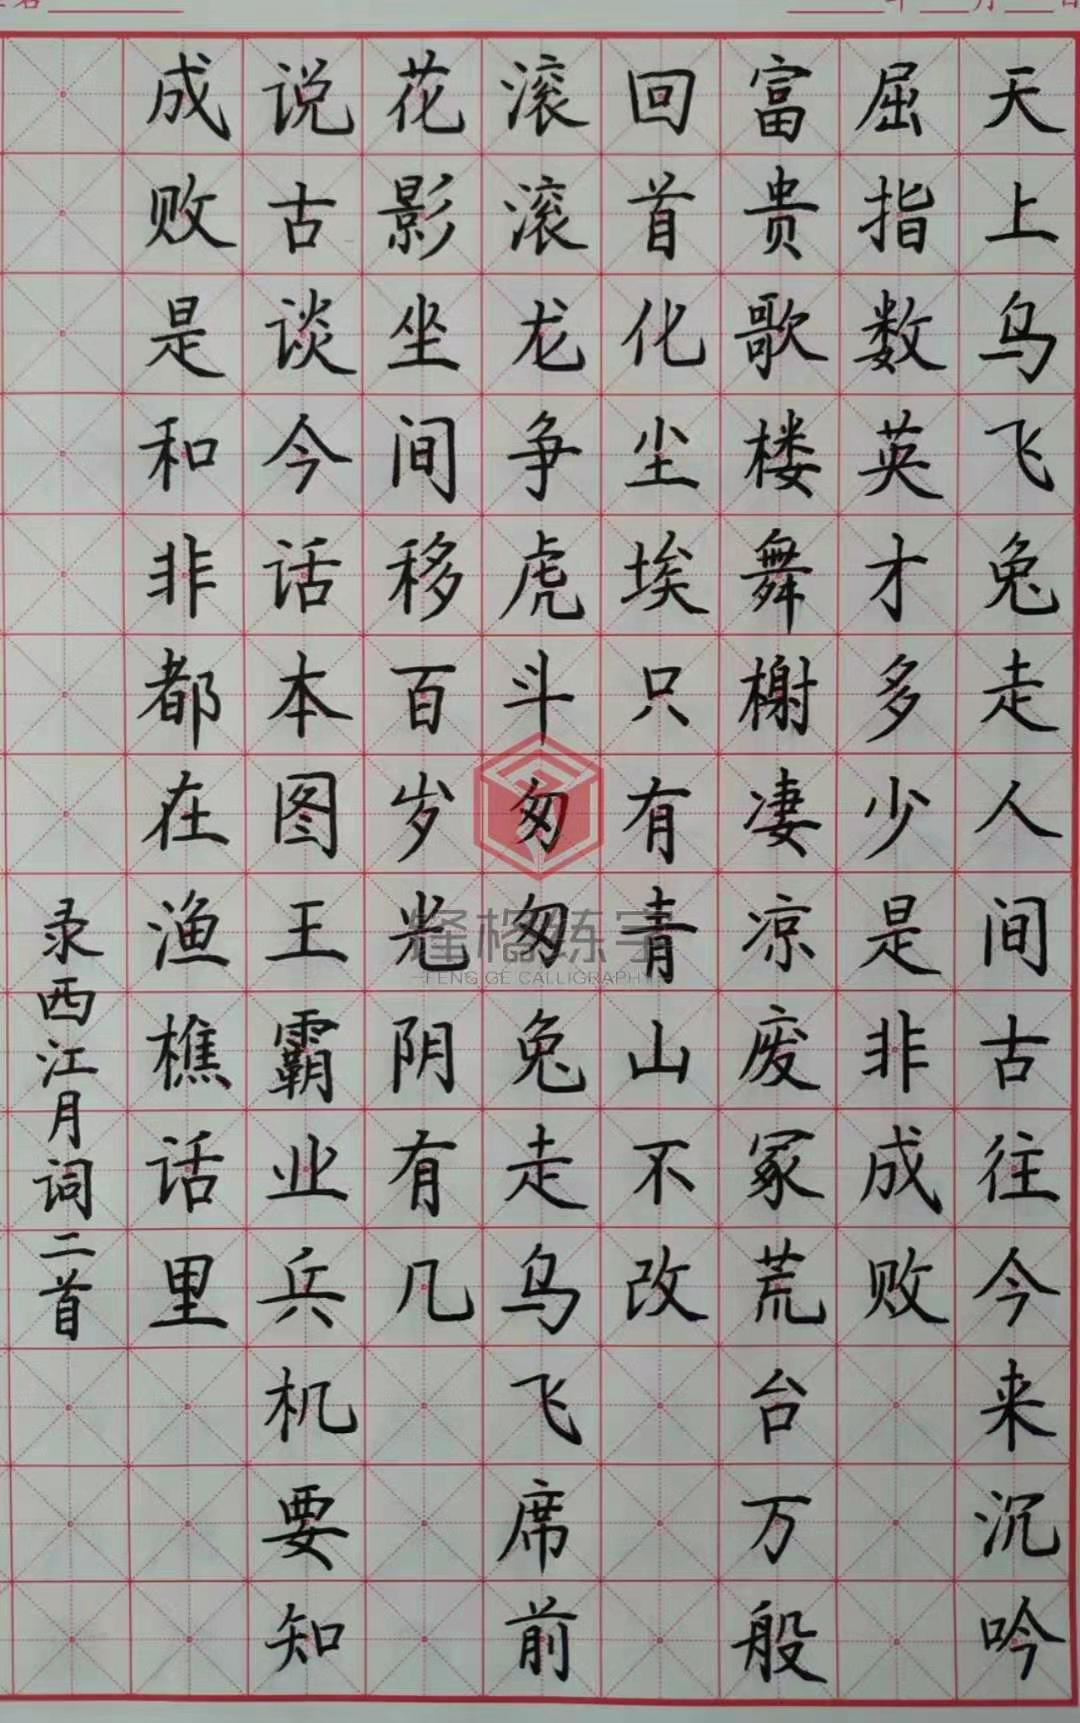 天上乌飞兔走人间古往今来沉吟
屈指数英才多少是非成败
富贵歌楼舞榭凄凉废冢荒台万般
回首化尘埃只有青山不改
滚滚龙争虎斗匆匆兔走乌飞席前
花影坐间移百岁光阴有几
说古谈今话本图王霸业兵机要知
成败是和非都在渔樵话里
录西江月词二首
烽格练字
FENG GE CALLIGRAPHY
年 月